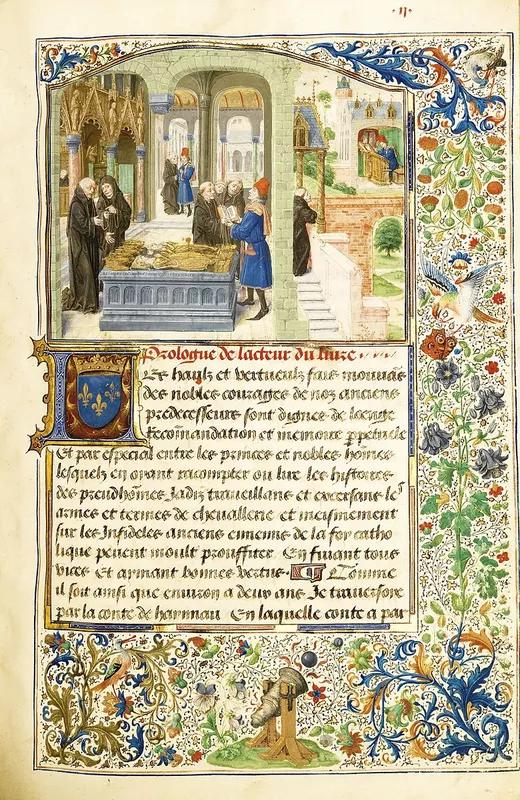 .ij.
Prologue de lacteur du liure
Les haulz et vertueulx fais mouuans
des nobles courages de noz anciens
predecesseurs sont dignes de loenge
Recommandation et memoire perpetuele
Et par especial entre les princes et nobles homes
lesquelz en oyant racompter ou lire les histores
des preudhomes Jadiz traueillans et excersans les
armes et termes de cheuallerie et meismement
sur les Infideles anciens ennemis de la foy catho
lique peuent moult prouffiter. En fuiant tous
vices Et aimant bonnes vertus. Comme
il soit ainsi que enuiron a deux ans Je trauersoie
par la conte de haynnau En laquelle conte a par